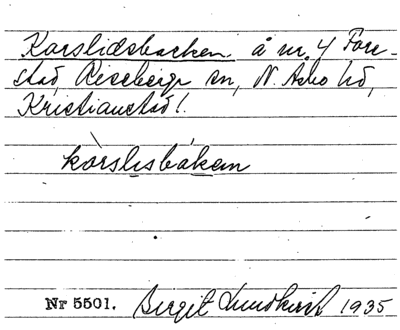 Korslidsbacken å nr 4 Fore-
stad Riseberga sn, N. Åsbo hd,
Kristianstad l.
kòrslɩsbákan
Nr 5501. Birgit Lundkvist 1935